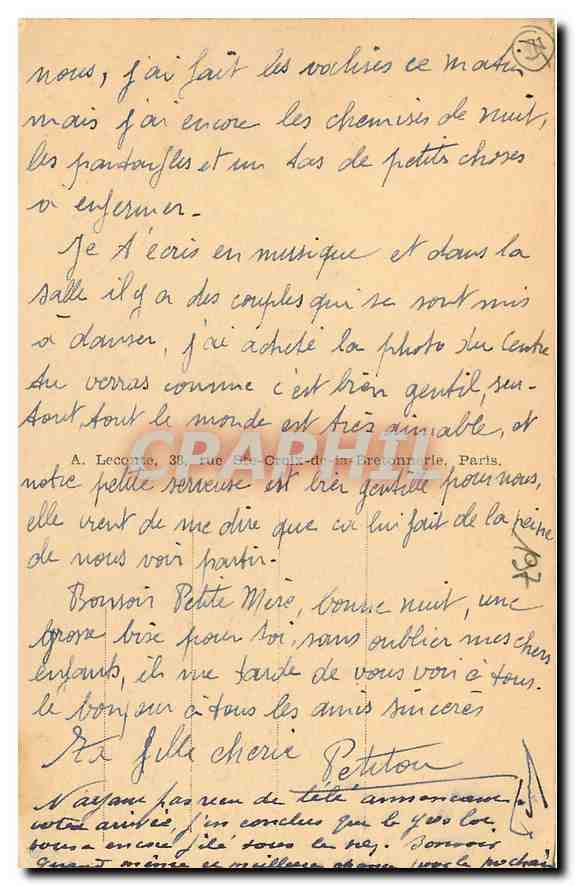 nous, j'ai fait les valises ce matin
mais j'ai encore les chemises de nuit,
les pantoufles et un tas de petits choses
à enfermer -
Je t'écris en musique et dans la
salle il y a des couples qui se sont mis
à danser, j'ai acheté la photo du Centre
tu verras comme c'est bien gentil, sur-
tout, tout le monde est très aimable, et
A. Leconte, 38, rue Ste-Croix-de-la-Bretonnerie, Paris.
CRAPHIL
notre petite serveuse est bien gentille pour nous,
elle vient de me dire que ca lui fait de la peine
de nous voir partir -
197
Bonsoir Petite Mère, bonne nuit, une
grosse bise pour toi, sans oublier mes chers
enfants, il me tarde de vous voir à tous.
le bonjour à tous les amis sincères
Ta fille cherie Petitou
N'ayant pas reçu de télé annoncant
votre arrivée, j'en conclus que le gros lot
vous a encore filé sous le nez. Bonsoir
quand même et meilleure chance pour le prochain